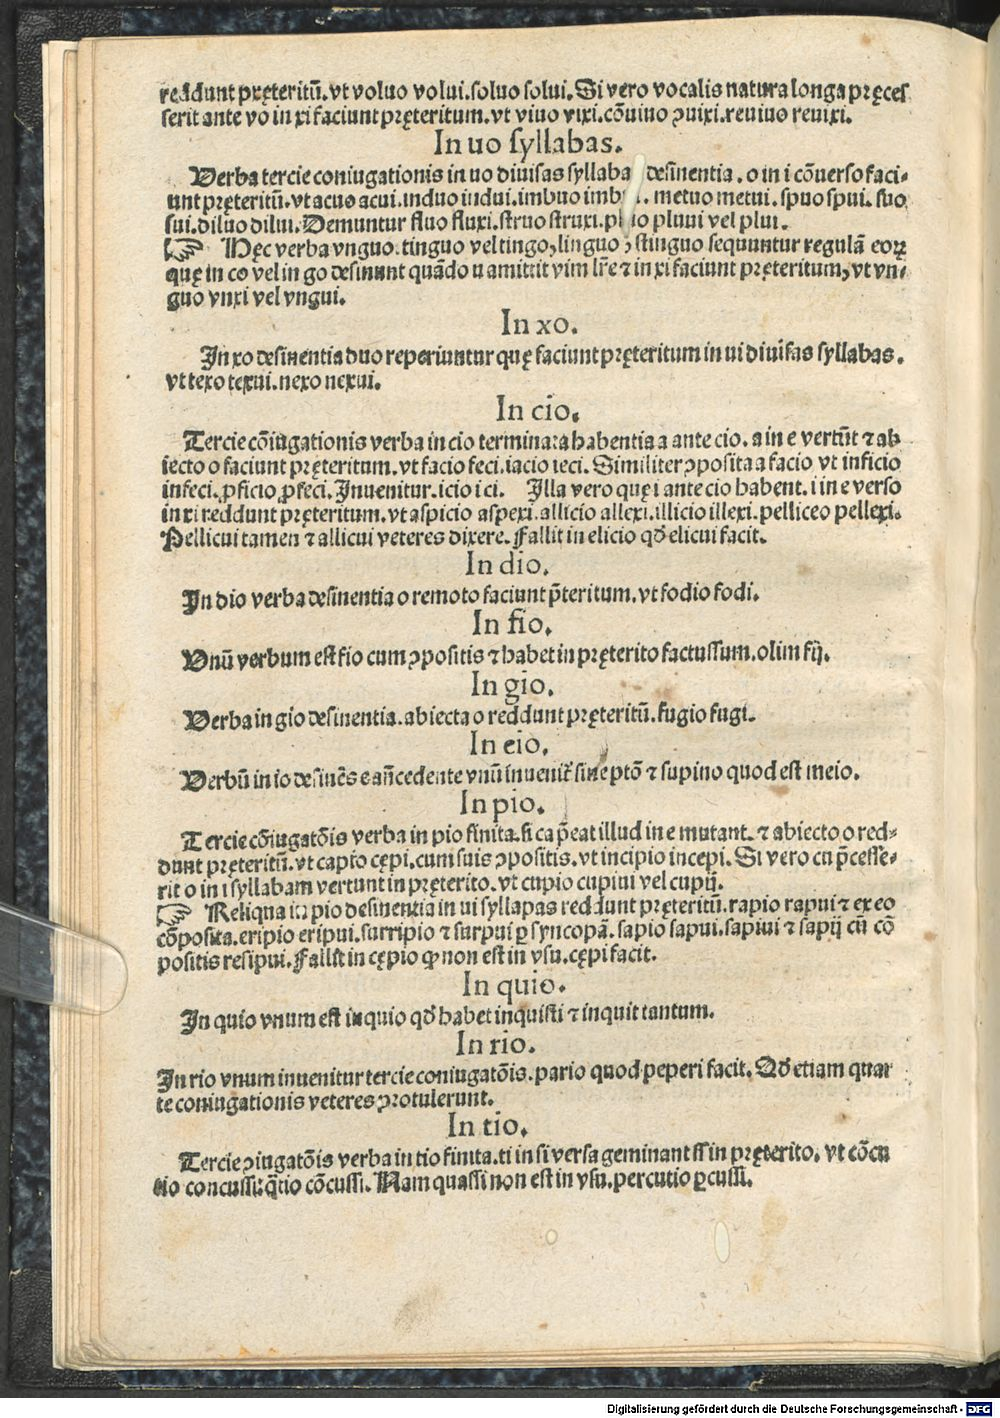 reddunt pręteritū. vt voluo volui. soluo solui. Si vero vocalis natura longa pręceſ
serit ante vo in xi faciunt pręteritum. vt viuo vixi. cōuiuo ꝯuixi. reuiuo reuixi.
In uo syllabas.
Verba tercie coniugationis in uo diuisas syllabas desinentia. o in i cōuerso faci-
unt pręteritū. vt acuo acui. induo indui. imbuo metuo metui. spuo spui. suo
sui. diluo dilui. Demuntur fluo fluxi. struo struxi. pluo pluui vel plui.
☞ Hęc verba vnguo. tinguo vel tingo, linguo, stinguo sequuntur regulā eoꝝ
quę in co vel in go desinunt quādo u amittit vim lr̄e ⁊ in xi faciunt pręteritum, vt vn-
guo vnxi vel vngui.
In xo.
In xo desinentia duo reperiuntur quę faciunt pręteritum in ui diuisas syllabas.
vt texo texui. nexo nexui.
In cio.
Tercie cōiugationis verba in cio terminata habentia a ante cio. a in e vertūt ⁊ ab
iecto o faciunt pręteritum. vt facio feci. iacio ieci. Similiter ꝯposita a facio vt inficio
infeci. ꝓficio ꝓfeci. Inuenitur. icio ici. Illa vero quę i ante cio habent. i in e verso
in xi reddunt pręteritum. vt aspicio aspexi. allicio allexi. illicio illexi. pelliceo pellexi.
Pellicui tamen ⁊ allicui veteres dixere. Fallit in elicio qd̄ elicui facit.
In dio.
In dio verba desinentia o remoto faciunt p̄teritum. vt fodio fodi.
In fio.
Vnū verbum est fio cum ꝯpositis ⁊ habet in pręterito factussum. olim fij.
In gio.
Verba in gio desinentia. abiecta o reddunt pręteritū. fugio fugi.
In eio.
Verbū in io desinēs e an̄cedente vnū inuenit̄ sine p̄tō ⁊ supino quod est meio.
In pio.
Tercie cōiugatōis verba in pio finita. si ca p̄eat illud in e mutant. ⁊ abiecto o red-
dunt pręteritū. vt capio cępi. cum suis ꝯpositis. vt incipio incepi. Si vero cu p̄cesse-
rit o in i syllabam vertunt in pręterito. vt cupio cupiui vel cupij.
☞ Reliqua in pio desinentia in ui syllapas reddunt pręteritū. rapio rapui ⁊ ex eo
cōposita. eripio eripui. surripio ⁊ surpui ꝑ syncopā. sapio sapui. sapiui ⁊ sapij cū cō
positis resipui. Fallit in cępio qꝫ non est in vsu. cępi facit.
In quio.
In quio vnum est inquio qd̄ habet inquisti ⁊ inquit tantum.
In rio.
In rio vnum inuenitur tercie coniugatōis. pario quod peperi facit. Qd̄ etiam quar
te coniugationis veteres ꝓtulerunt.
In tio.
Tercie ꝯiugatōis verba in tio finita. ti in si versa geminant ss in pręterito. vt cōcu
tio concussi: q̄tio cōcussi. Nam quassi non est in vsu. percutio ꝑcussi.
Digitalisierung gefördert durch die Deutsche Forschungsgemeinschaft - DFG